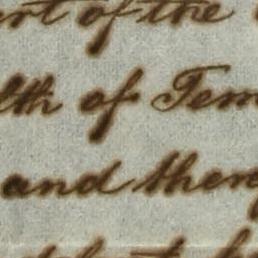 rt of the
lth of Tem
and then